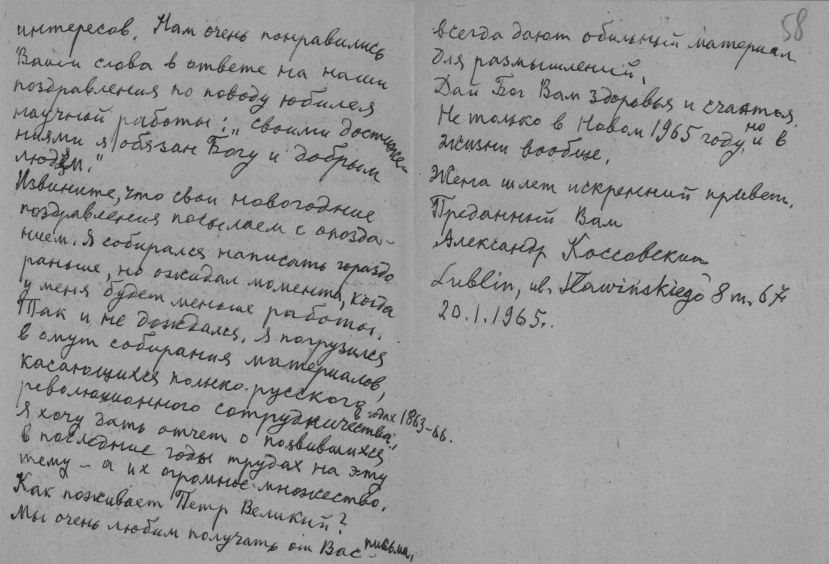 интересов. Нам очень понравились
Ваши слова в ответе на наши
поздравления по поводу юбилея
научной работы: "своими достиже-
ниями я обязан Богу и добрым
людям."
Извините, что свои новогодние
поздравления посылаем с опозда-
нием. Я собирался написать гораздо
раньше, но ожидал момента, когда
у меня будет меньше работы.
Так и не дождался. Я погрузился
в омут собирания материалов,
касающихся польско-русского
революционного сотрудничества в годах 1863-66.
Я хочу дать отчет о появившихся
в последние годы трудах на эту
тему - а их огромное множество.
Как поживает Петр Великий?
Мы очень любим получать от Вас письма,
58
всегда дают обильный материал
для размышлений.
Дай Бог Вам здоровья и счастья
не только в Новом 1965 году, но и в
жизни вообще.
Жена шлет искренний привет.
Преданный Вам
Александр Коссовский
Lublin, ul. Sławińskiego 8 m. 67
20.1.1965.